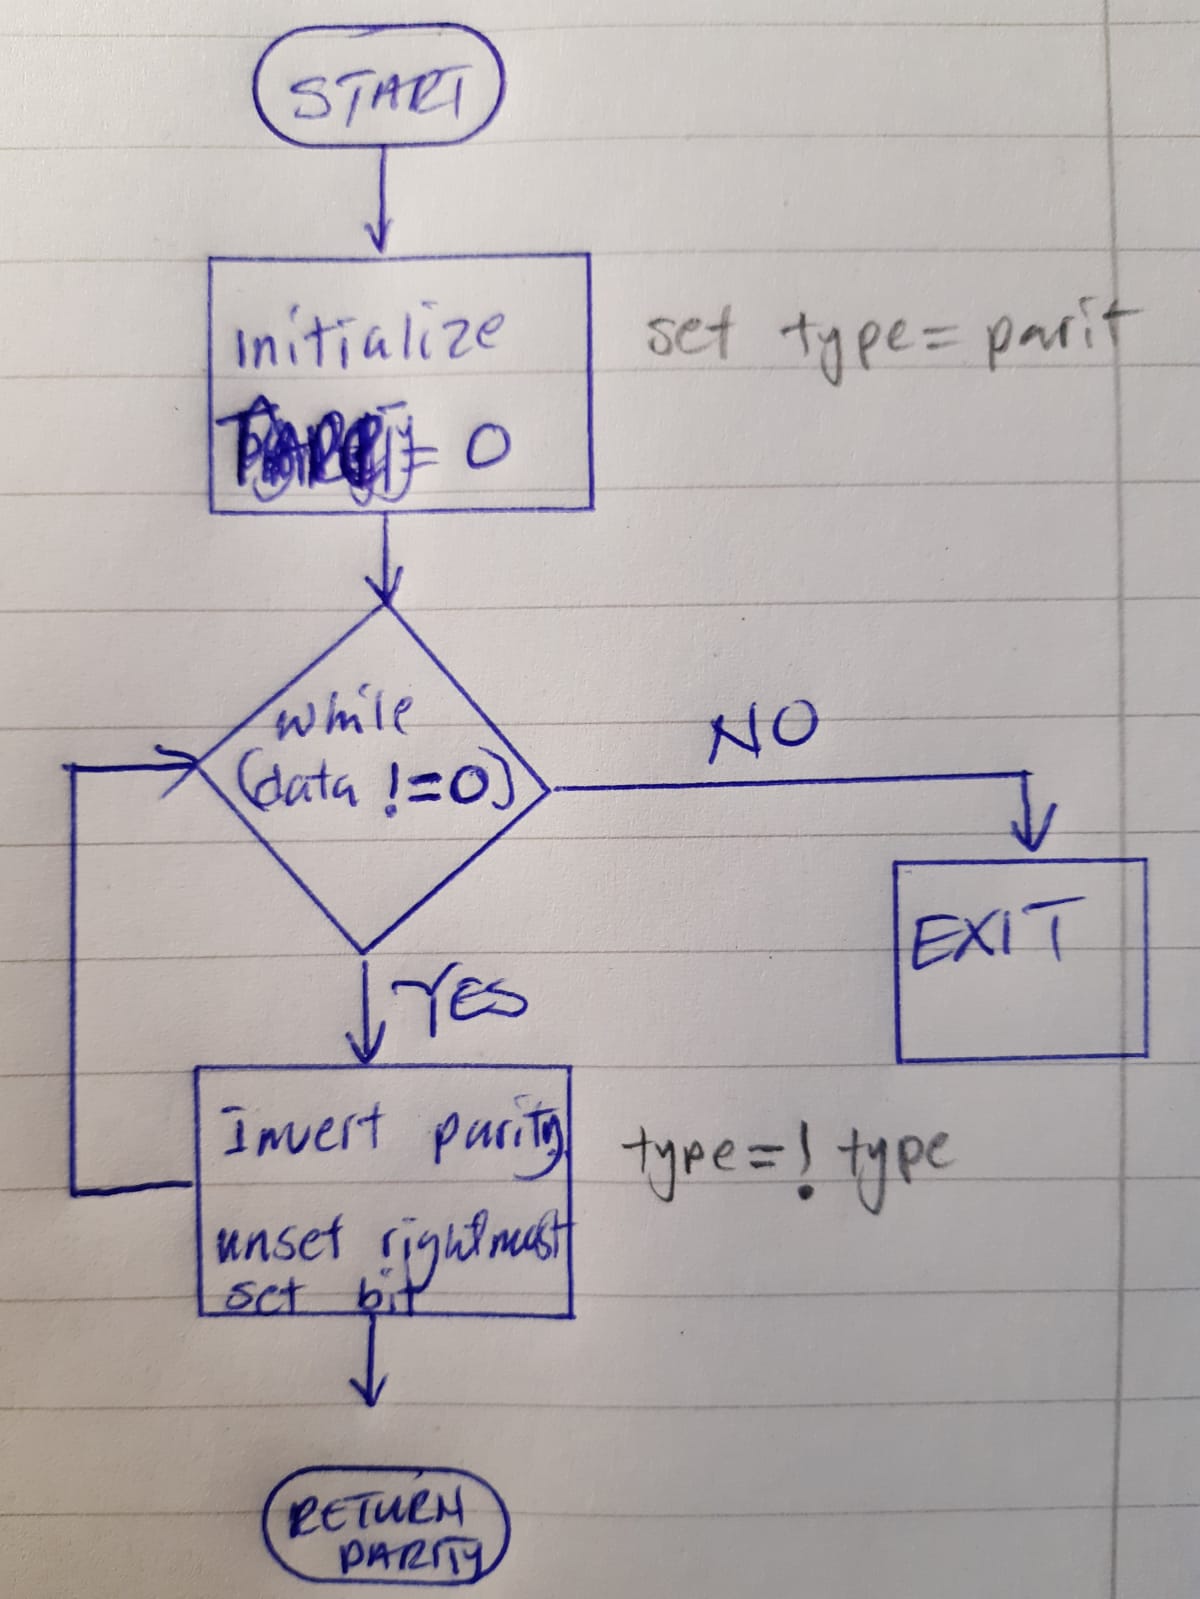 START
initialize
set type = parit
= 0
while
(data != 0)
NO
EXIT
YES
Invert parity
type = ! type
unset rightmost
set bit
RETURN
PARITY